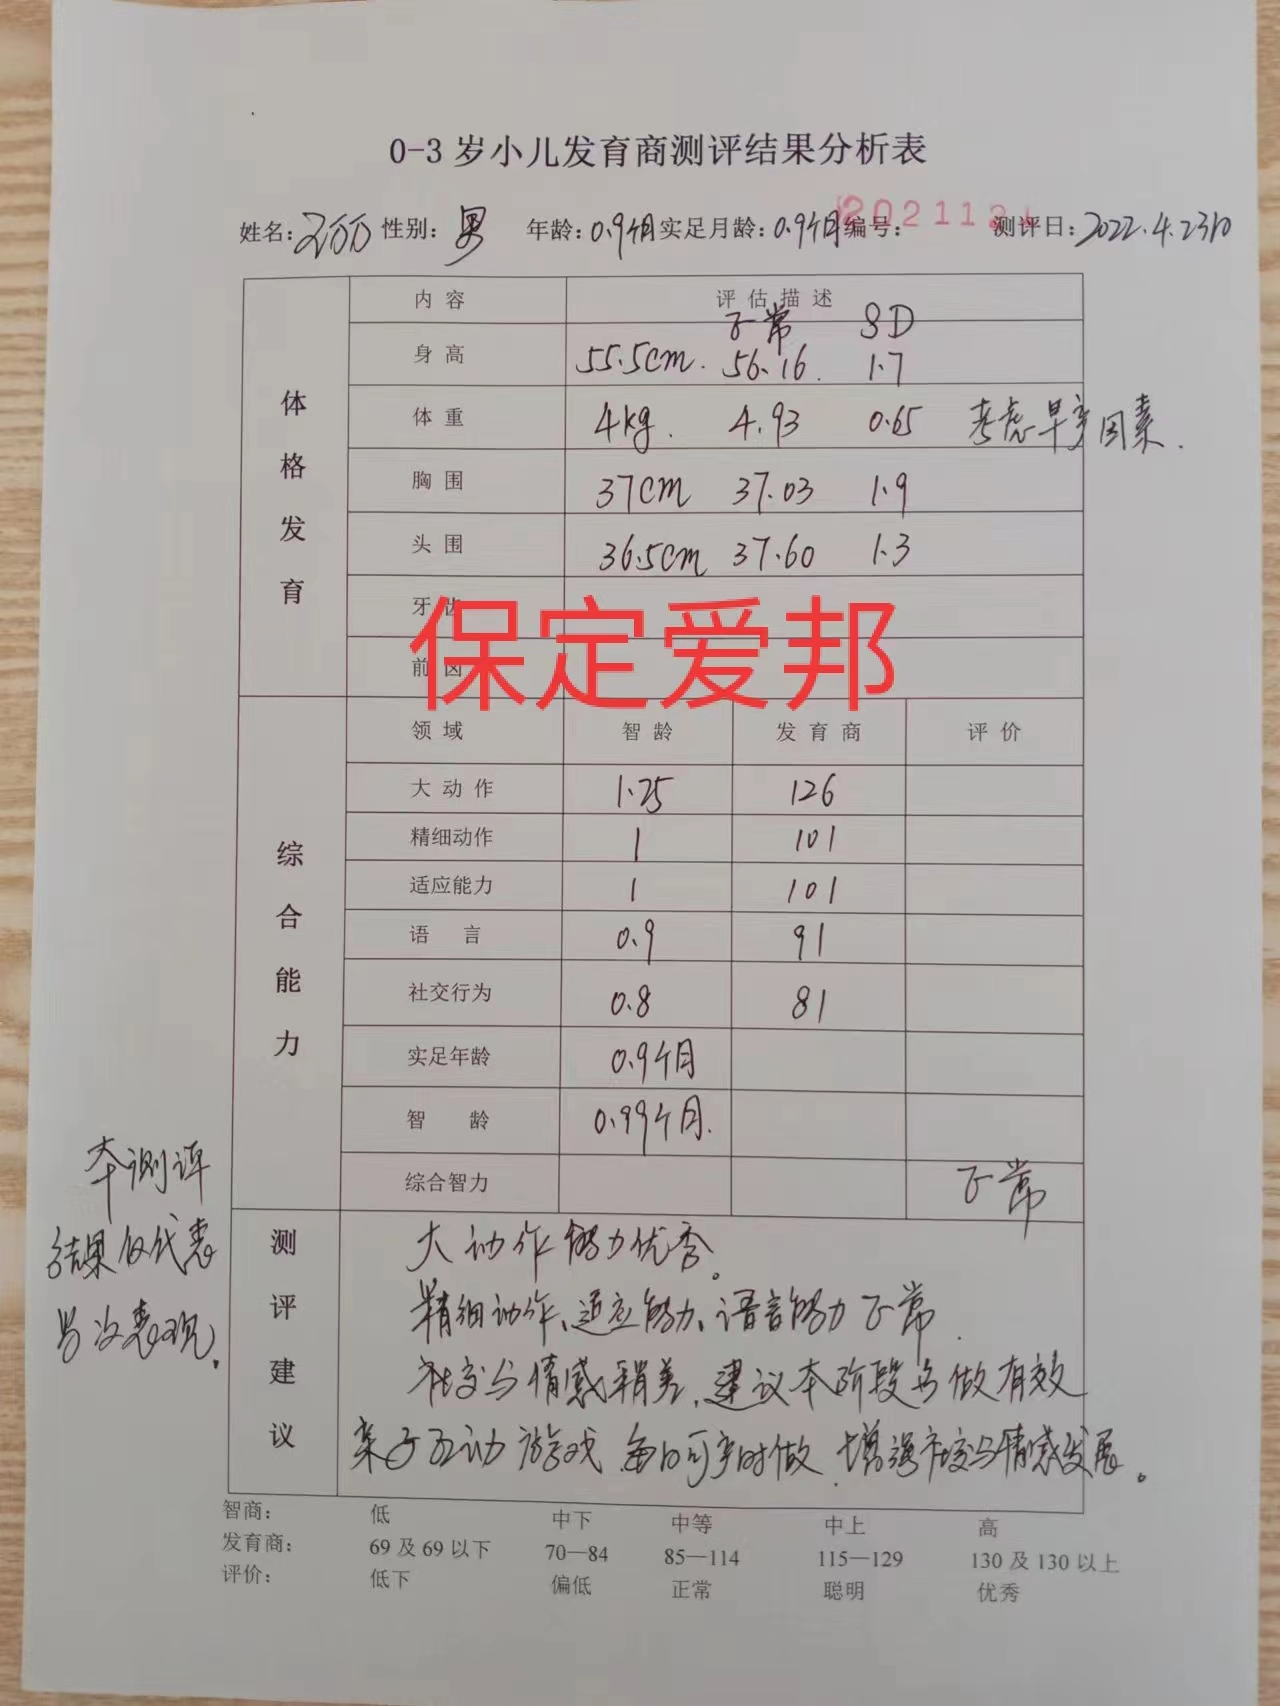 0-3岁小儿发育商测评结果分析表
姓名: 性别: 男 年龄: 0.9个月 实足月龄: 0.9个月 编号: 2021121 测评日: 2022.4.23
体格发育
内容 评估描述
正常 SD
身高 55.5cm. 56.16. 1.7
体重 4kg. 4.93 0.65 考虑早产因素.
胸围 37cm 37.03 1.9
头围 36.5cm 37.60 1.3
牙齿
前囟
保定爱邦
综合能力
领域 智龄 发育商 评价
大动作 1.25 126
精细动作 1 101
适应能力 1 101
语言 0.9 91
社交行为 0.8 81
实足年龄 0.9个月
智龄 0.99个月.
综合智力 正常
本测评
结果仅代表
当次表现。
测评建议
大动作能力优秀。
精细动作、适应能力、语言能力正常.
社交与情感稍差,建议本阶段多做有效
亲子互动游戏 每日可定时做.增强社交与情感发展。
智商: 低 中下 中等 中上 高
发育商: 69及69以下 70—84 85—114 115—129 130及130以上
评价: 低下 偏低 正常 聪明 优秀